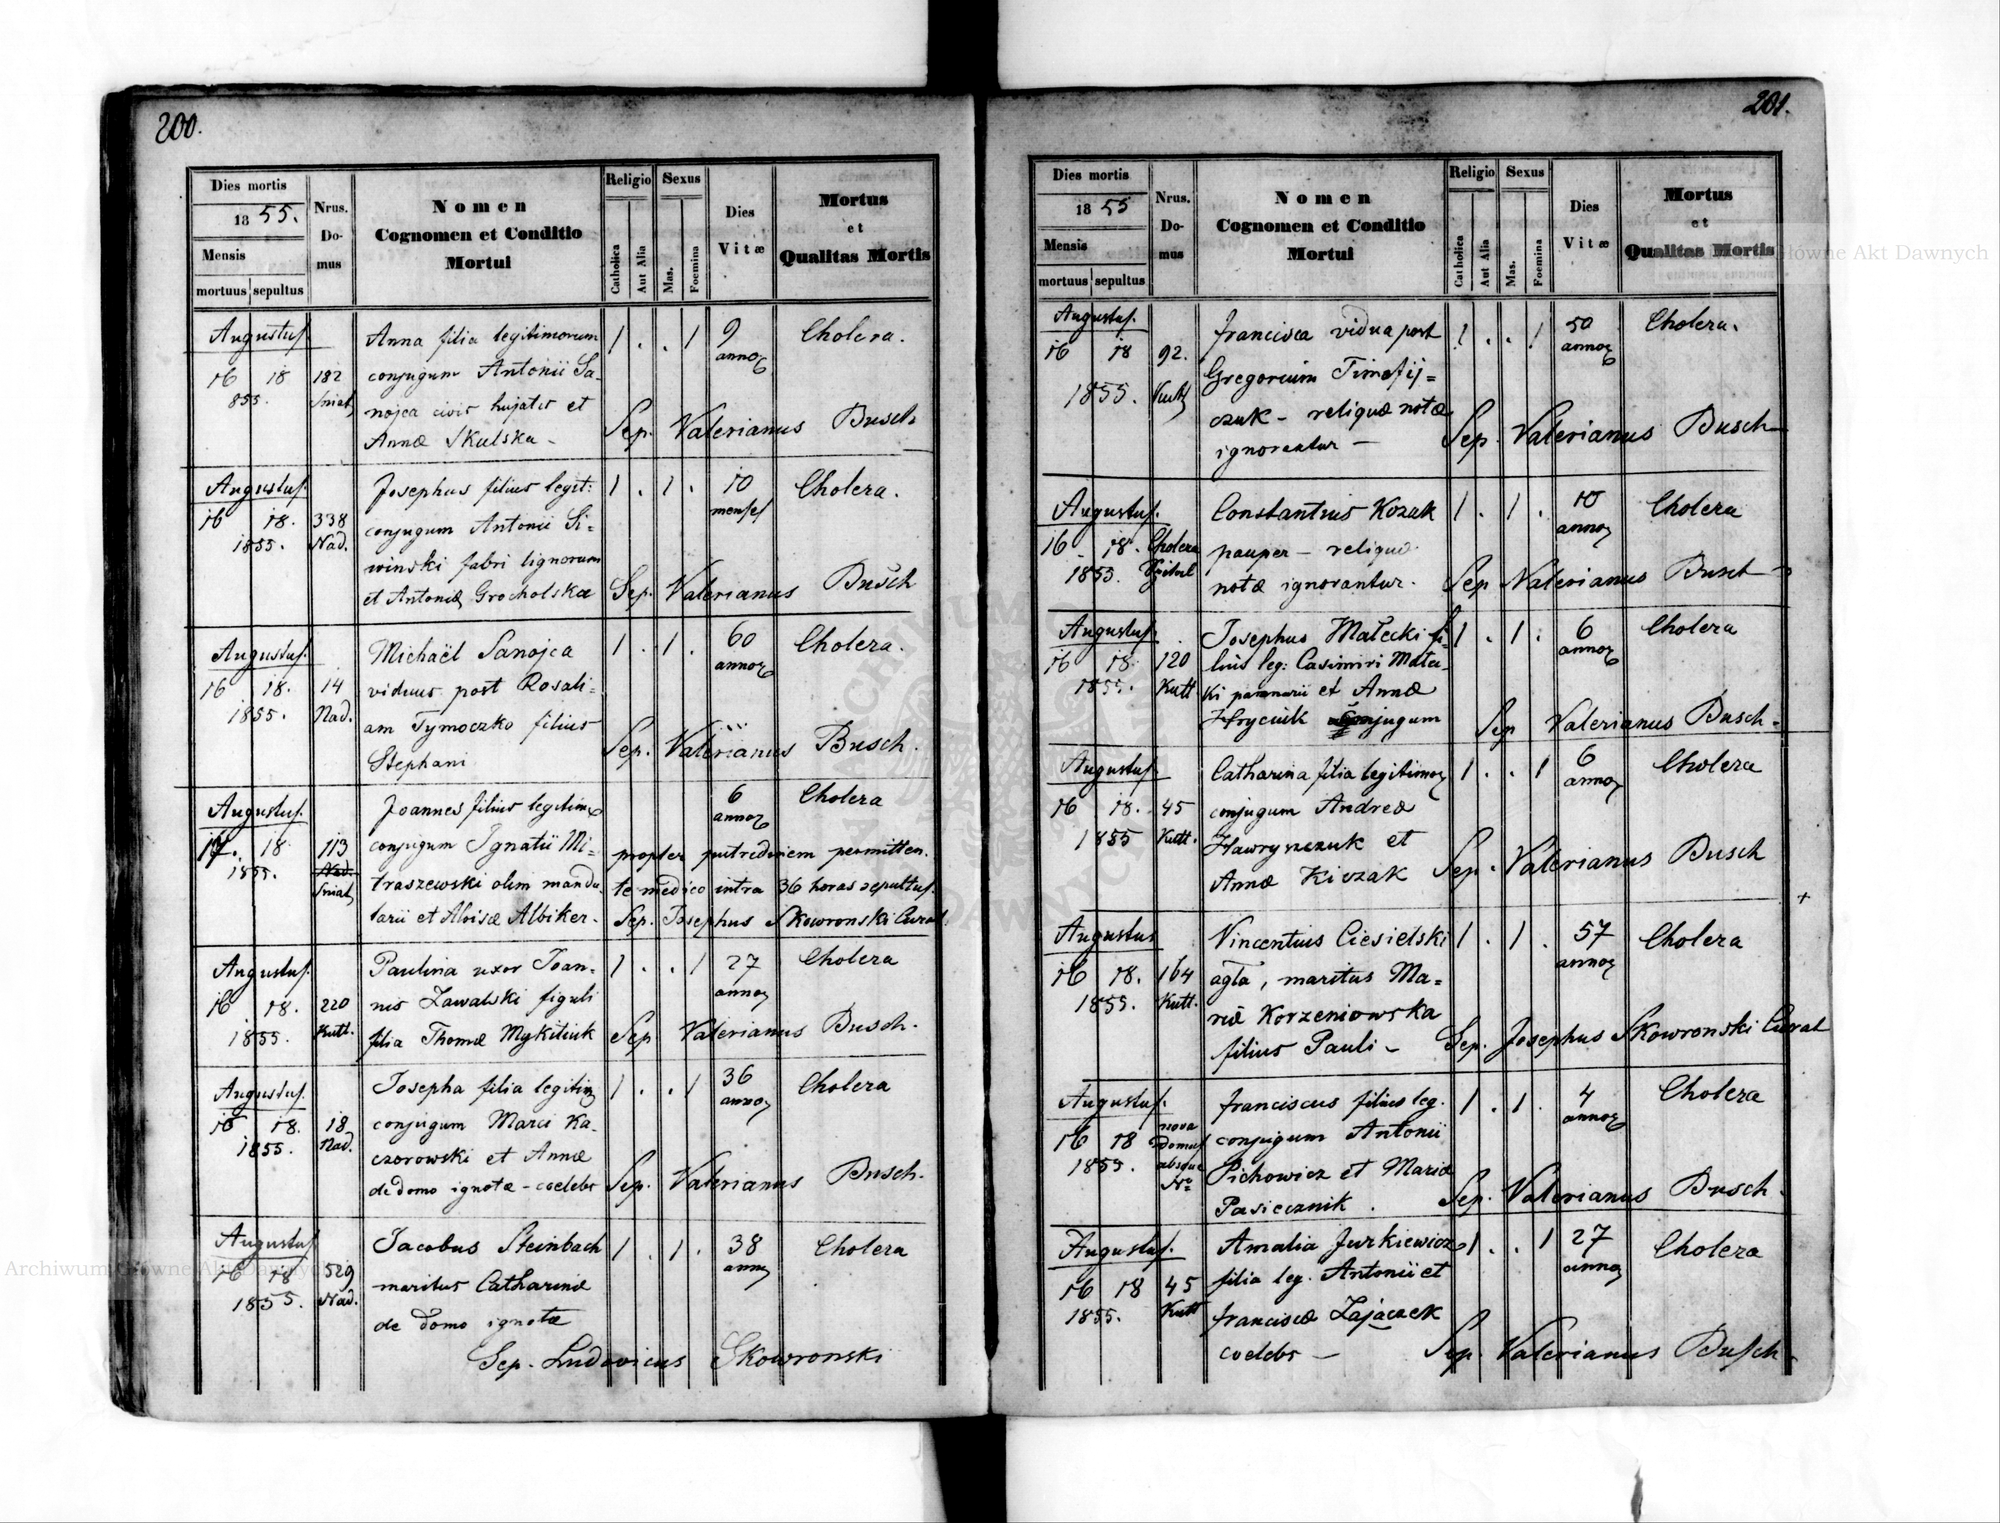 200.
Dies mortis
1855.
Mensis
mortuus sepultus
Nrus. Do- mus
Nomen
Cognomen et Conditio
Mortui
Religio
Catholica
Aut Alia
Sexus
Mas.
Foemina
Dies
Vitæ
Mortus
et
Qualitas Mortis
Augustus.
16 18
855.
182
Sniat
Anna filia legitimorum
conjugum Antonii Sa-
nojca civis hujatis et
Annæ Skulska -
1 . . 1
9
annor
Cholera.
Sep. Valerianus Busch
Augustus.
16 18.
1855.
338
Nad.
Josephus filius legit:
conjugum Antonii Si-
winski fabri lignorum
et Antoniæ Grocholska
1 . 1 .
10
menses
Cholera.
Sep. Valerianus Busch
Augustus.
16 18.
1855.
14
Nad.
Michaël Sanojca
viduus post Rosali-
am Tymoczko filius
Stephani
1 . 1 .
60
annor
Cholera.
Sep. Valerianus Busch.
Augustus.
17. 18
1855.
113
Nad.
Sniat
Joannes filius legitim
conjugum Ignatii Mi-
traszewski olim manda
tarii et Aloisæ Albiker.
6
annor
Cholera
propter putredinem permitten.
te medico intra 36 horas sepultus.
Sep. Josephus Skowronski Curat.
Augustus.
16 18.
1855.
220
Kutt.
Paulina uxor Joan-
nis Zawalski figuli
filia Thomæ Mykitiuk
1 . . 1
27
annor
Cholera
Sep Valerianus Busch.
Augustus.
16 18.
1855.
18
Nad.
Josepha filia legitim
conjugum Marci Ka-
czorowski et Annæ
de domo ignota - coelebs
1 . . 1
36
annor
Cholera
Sep. Valerianus Busch.
Augustus
16 18
1855.
529
Nad.
Jacobus Steinbach
maritus Catharinæ
de domo ignotæ
1 . 1 .
38
annor
Cholera
Sep. Ludovicus Skowronski
201.
Dies mortis
1855
Mensis
mortuus sepultus
Nrus. Do- mus
Nomen
Cognomen et Conditio
Mortui
Religio
Catholica
Aut Alia
Sexus
Mas.
Foemina
Dies
Vitæ
Mortus
et
Qualitas Mortis
Augustus.
16 18
1855.
92.
Kutt
francisca vidua post
Gregorium Timofij=
czuk - reliquæ notæ
ignorantur -
1 . . 1
50
annor
Cholera.
Sep. Valerianus Busch
Augustus.
16 18.
1855.
Cholera
Spital
Constantius Kozak
pauper - reliquæ
notæ ignorantur.
1 . 1 .
10
annor
Cholera
Sep Valerianus Busch
Augustus.
16 18.
1855.
120
Kutt
Josephus Małecki fi-
lius leg: Casimiri Małe-
ki et Annæ
Hryciuk conjugum
1 . 1 .
6
annor
Cholera
Sep Valerianus Busch.
Augustus.
16 18.
1855
45
Kutt.
Catharina filia legitimor
conjugum Andreæ
Hawryszczuk et
Annæ Kiczak
1 . . 1
6
annor
Cholera
Sep. Valerianus Busch
Augustus
16 18.
1855.
164
Kutt.
Vincentius Ciesielski
agla, maritus Ma=
riæ Korzeniowska
filius Pauli -
1 . 1 .
57
annor
Cholera
Sep. Josephus Skowronski Curat
Augustus.
16 18
1855.
nova
Domus
absque
No
franciscus filius leg.
conjugum Antonii
Pichowicz et Mariæ
Pasiecznik .
1 . 1 .
4
annor
Cholera
Sep. Valerianus Busch.
Augustus.
16 18
1855.
45
Kutt
Amalia Jurkiewicz
filia leg. Antonii et
franciscæ Zajączek
coelebs -
1 . . 1
27
annor
Cholera
Sep. Valerianus Busch
Archiwum Główne Akt Dawnych